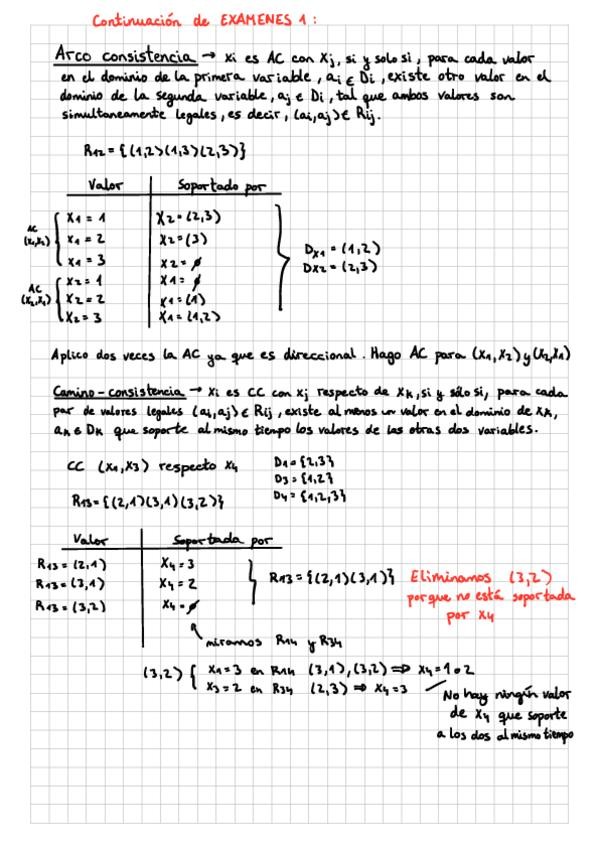 Continuación de EXAMENES 1 :
Arco consistencia → xi es AC con Xj, si y solo si, para cada valor
en el dominio de la primera variable, ai ∈ Di, existe otro valor en el
dominio de la segunda variable, aj ∈ Di, tal que ambos valores son
simultaneamente legales, es decir, (ai,aj) ∈ Rij.
R12 = {(1,2)(1,3)(2,3)}
Valor Soportado por
AC (x1,x2) X1 = 1 X2 = (2,3)
X1 = 2 X2 = (3)
X1 = 3 X2 = ∅
AC (x2,x1) X2 = 1 X1 = ∅
X2 = 2 X1 = (1)
X2 = 3 X1 = (1,2)
Dx1 = (1,2)
Dx2 = (2,3)
Aplico dos veces la AC ya que es direccional. Hago AC para (x1,x2) y (x2,x1)
Camino-consistencia → Xi es CC con xj respecto de Xk, si y sólo si, para cada
par de valores legales (ai,aj) ∈ Rij, existe al menos un valor en el dominio de XK,
ak ∈ Dk que soporte al mismo tiempo los valores de las otras dos variables.
CC (x1,x3) respecto x4
D1 = {2,3}
D3 = {1,2}
D4 = {1,2,3}
R13 = {(2,1)(3,1)(3,2)}
Valor Soportada por
R13 = (2,1) X4 = 3
R13 = (3,1) X4 = 2
R13 = (3,2) X4 = ∅
R13 = {(2,1)(3,1)} Eliminamos (3,2)
porque no está soportada
por x4
miramos R14 y R34
(3,2) { X1 = 3 en R14 (3,1),(3,2) ⇒ X4 = 1 o 2
X3 = 2 en R34 (2,3) ⇒ X4 = 3
No hay ningún valor
de X4 que soporte
a los dos al mismo tiempo